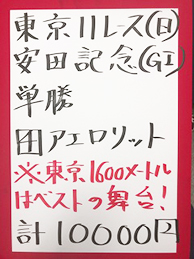 東京11レース(日)
安田記念(GI)
単勝
田アエロリット
※東京1600メートル
はベストの舞台!
計10000円